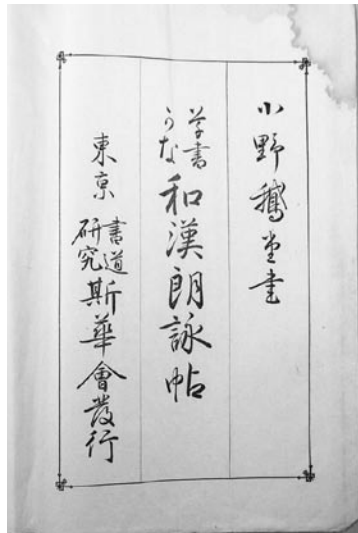 小野鵞堂書
草書かな 和漢朗詠帖
東京 書道研究 斯華會發行